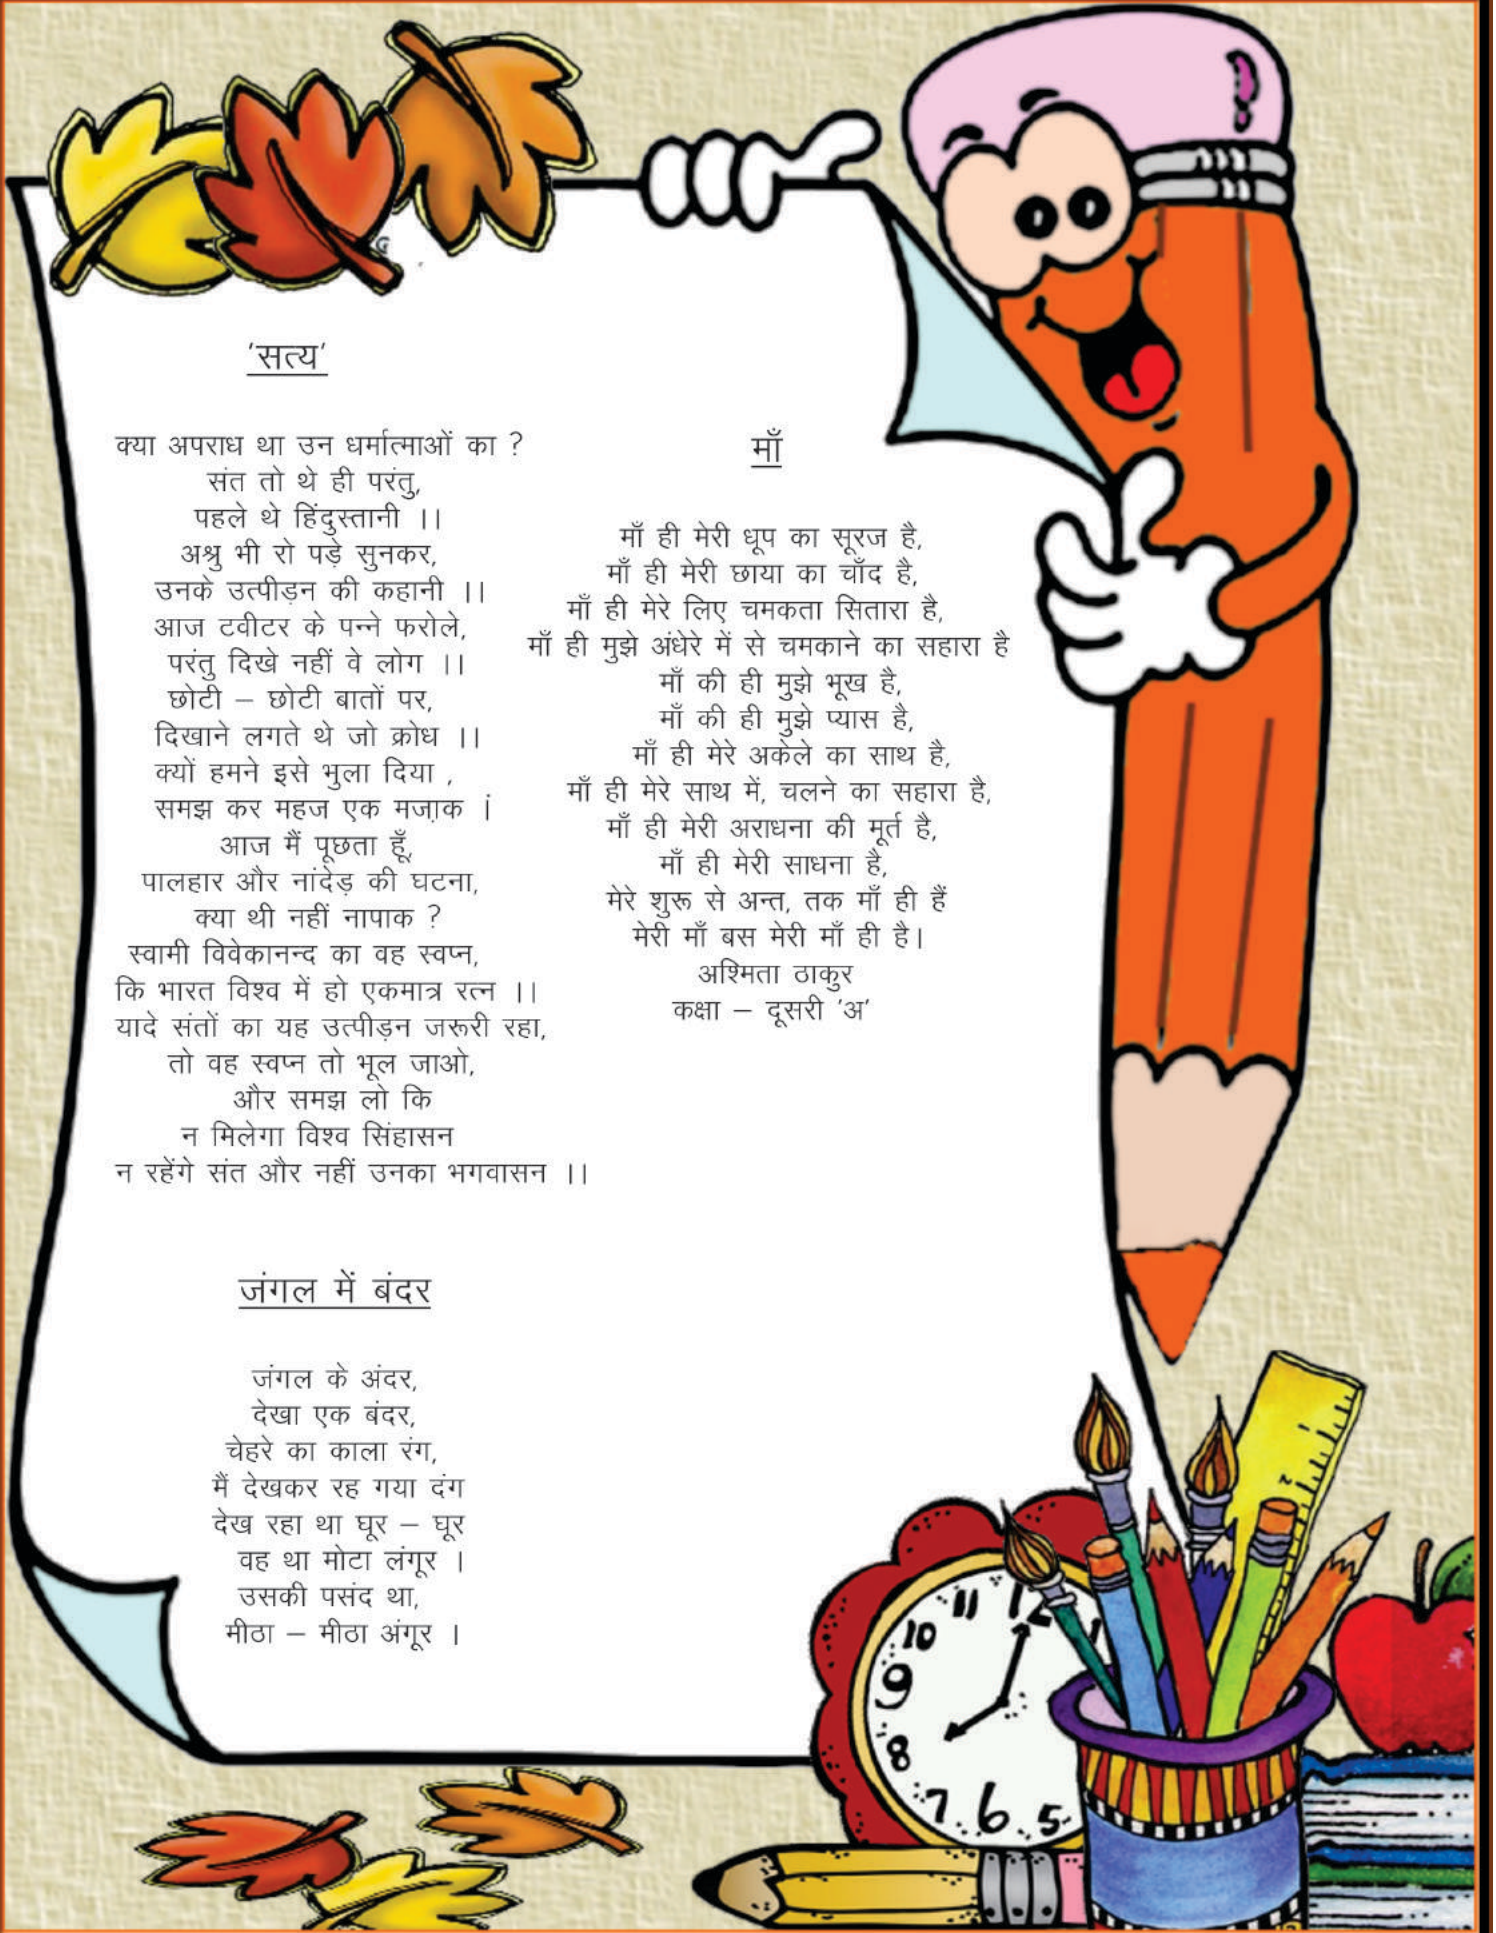 'सत्य'
क्या अपराध था उन धर्मात्माओं का ?
संत तो थे ही परंतु,
पहले थे हिंदुस्तानी ।।
अश्रु भी रो पड़े सुनकर,
उनके उत्पीड़न की कहानी ।।
आज टवीटर के पन्ने फरोले,
परंतु दिखे नहीं वे लोग ।।
छोटी – छोटी बातों पर,
दिखाने लगते थे जो क्रोध ।।
क्यों हमने इसे भुला दिया ,
समझ कर महज एक मजा़क ।
आज मैं पूछता हूँ,
पालहार और नांदेड़ की घटना,
क्या थी नहीं नापाक ?
स्वामी विवेकानन्द का वह स्वप्न,
कि भारत विश्व में हो एकमात्र रत्न ।।
यादे संतों का यह उत्पीड़न जरूरी रहा,
तो वह स्वप्न तो भूल जाओ,
और समझ लो कि
न मिलेगा विश्व सिंहासन
न रहेंगे संत और नहीं उनका भगवासन ।।
जंगल में बंदर
जंगल के अंदर,
देखा एक बंदर,
चेहरे का काला रंग,
मैं देखकर रह गया दंग
देख रहा था घूर – घूर
वह था मोटा लंगूर ।
उसकी पसंद था,
मीठा – मीठा अंगूर ।
माँ
माँ ही मेरी धूप का सूरज है,
माँ ही मेरी छाया का चाँद है,
माँ ही मेरे लिए चमकता सितारा है,
माँ ही मुझे अंधेरे में से चमकाने का सहारा है
माँ की ही मुझे भूख है,
माँ की ही मुझे प्यास है,
माँ ही मेरे अकेले का साथ है,
माँ ही मेरे साथ में, चलने का सहारा है,
माँ ही मेरी अराधना की मूर्त है,
माँ ही मेरी साधना है,
मेरे शुरू से अन्त, तक माँ ही हैं
मेरी माँ बस मेरी माँ ही है।
अश्मिता ठाकुर
कक्षा – दूसरी 'अ'
11
12
10
9
8
7
6
5